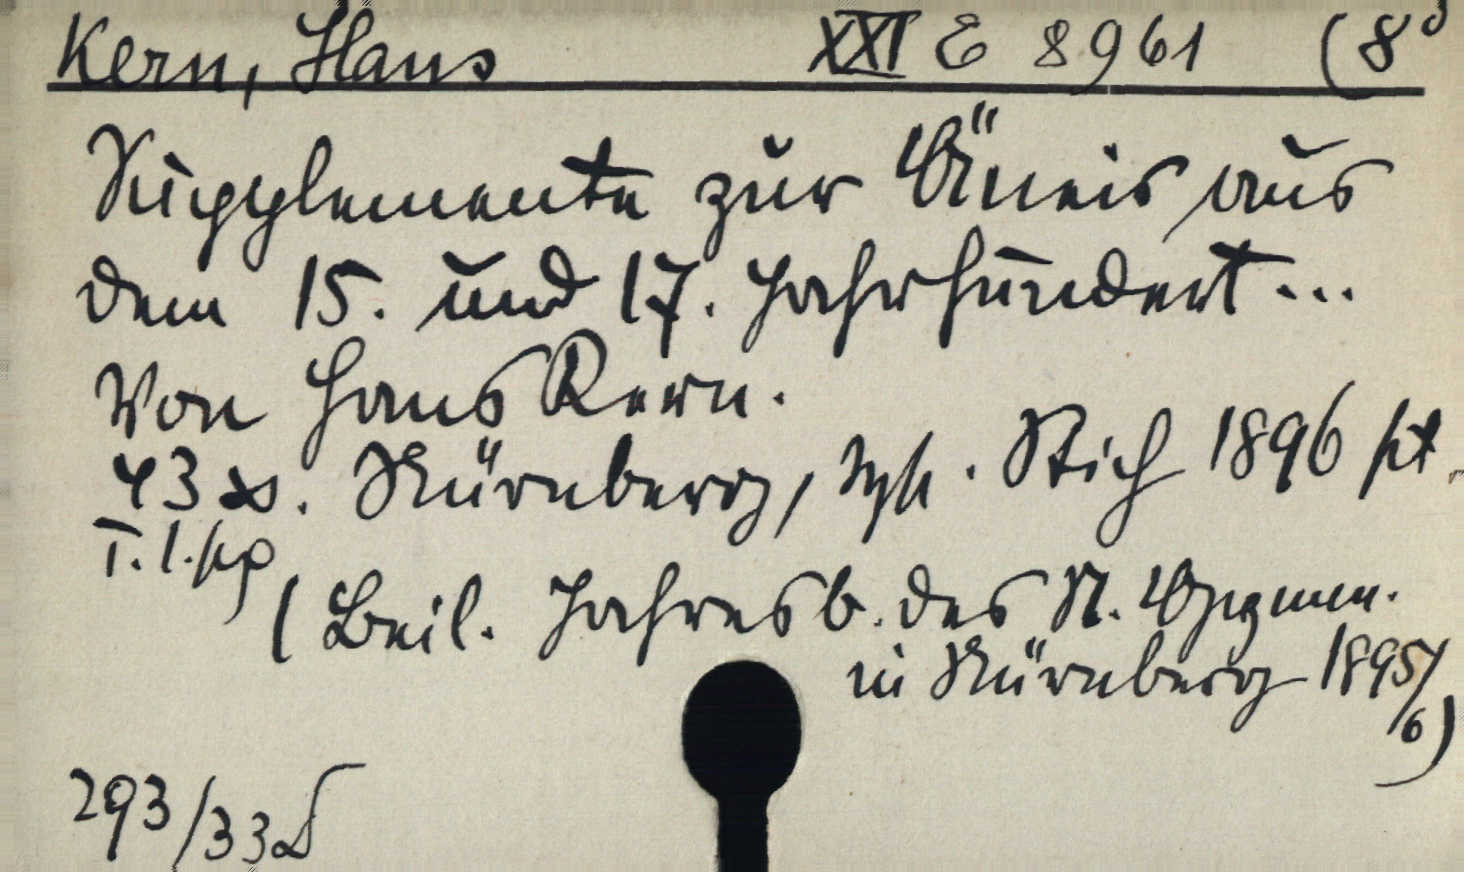 Kern, Hans XXI E 8961 (8°
Supplemente zur Äneis aus
dem 15. und 17. Jahrhundert...
Von Hans Kern.
43 S. Nürnberg, Typ. Stich 1896
(Beil. Jahresb. des N. Gymn.
in Nürnberg 1895/
6)
293/33